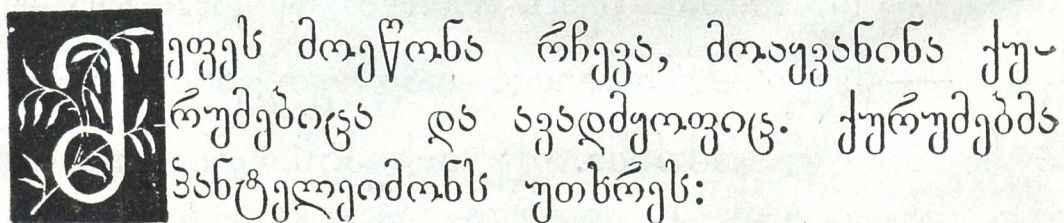 მეფეს მოეწონა რჩევა, მოაყვანინა ქუ-
რუმებიცა და ავადმყოფიც. ქურუმებმა
პანტელეიმონს უთხრეს: